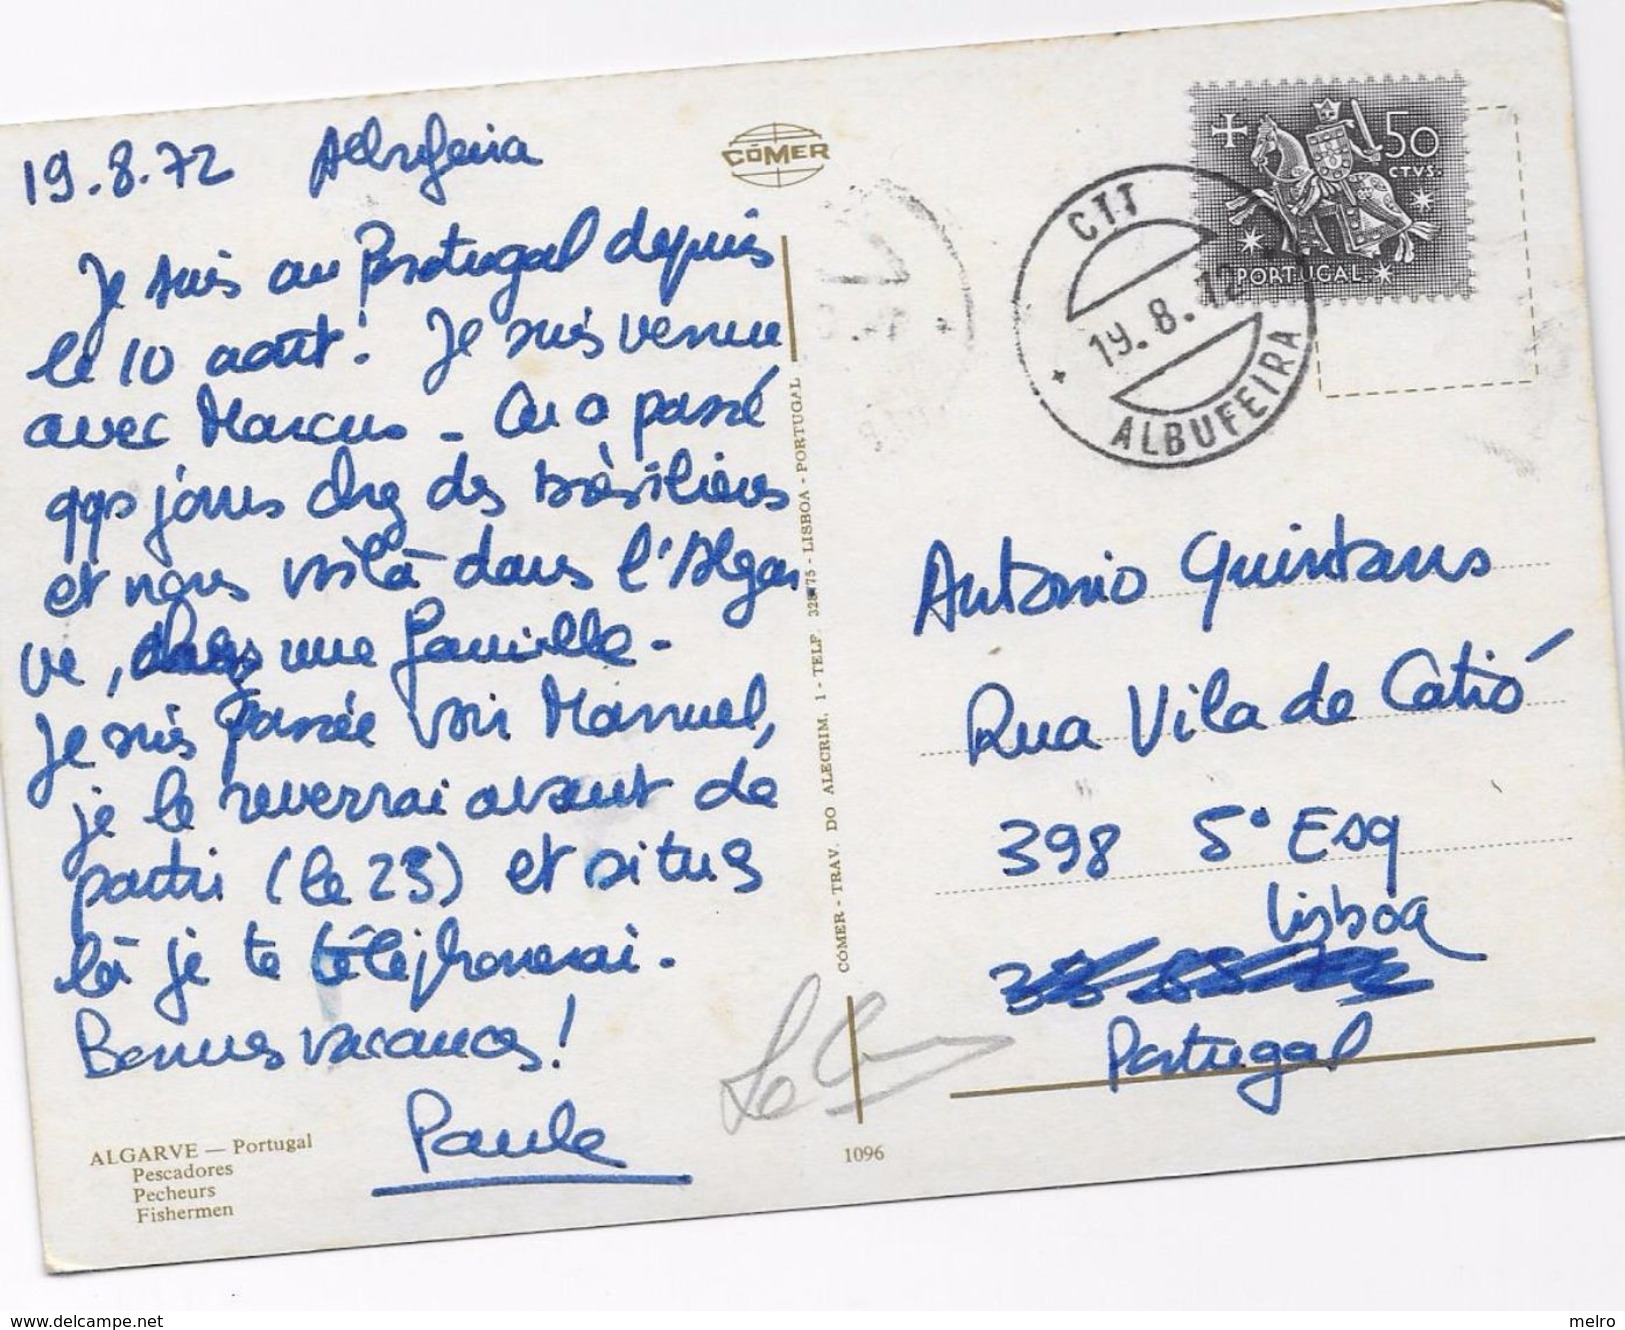 19.8.72 Albufeira
Je suis au Portugal depuis
le 10 août. Je suis venue
avec Marcus - On a passé
qqs jours chez des brésiliens
et nous voilà dans l'Algar
ve, dans une famille -
Je suis passée voir Manuel,
je le reverrai avant de
partir (le 23) et si tu es
là je te téléphonerai.
Bonnes vacances!
Paule
ALGARVE — Portugal
Pescadores
Pecheurs
Fishermen
CÓMER
CÓMER - TRAV. DO ALECRIM, 1 - TELF. 328775 - LISBOA - PORTUGAL
1096
50
CTVS.
PORTUGAL
CTT
19.8.72
ALBUFEIRA
Antonio Quintans
Rua Vila de Catió
398 5º Esq
Lisboa
Portugal
www.delcampe.net
melro